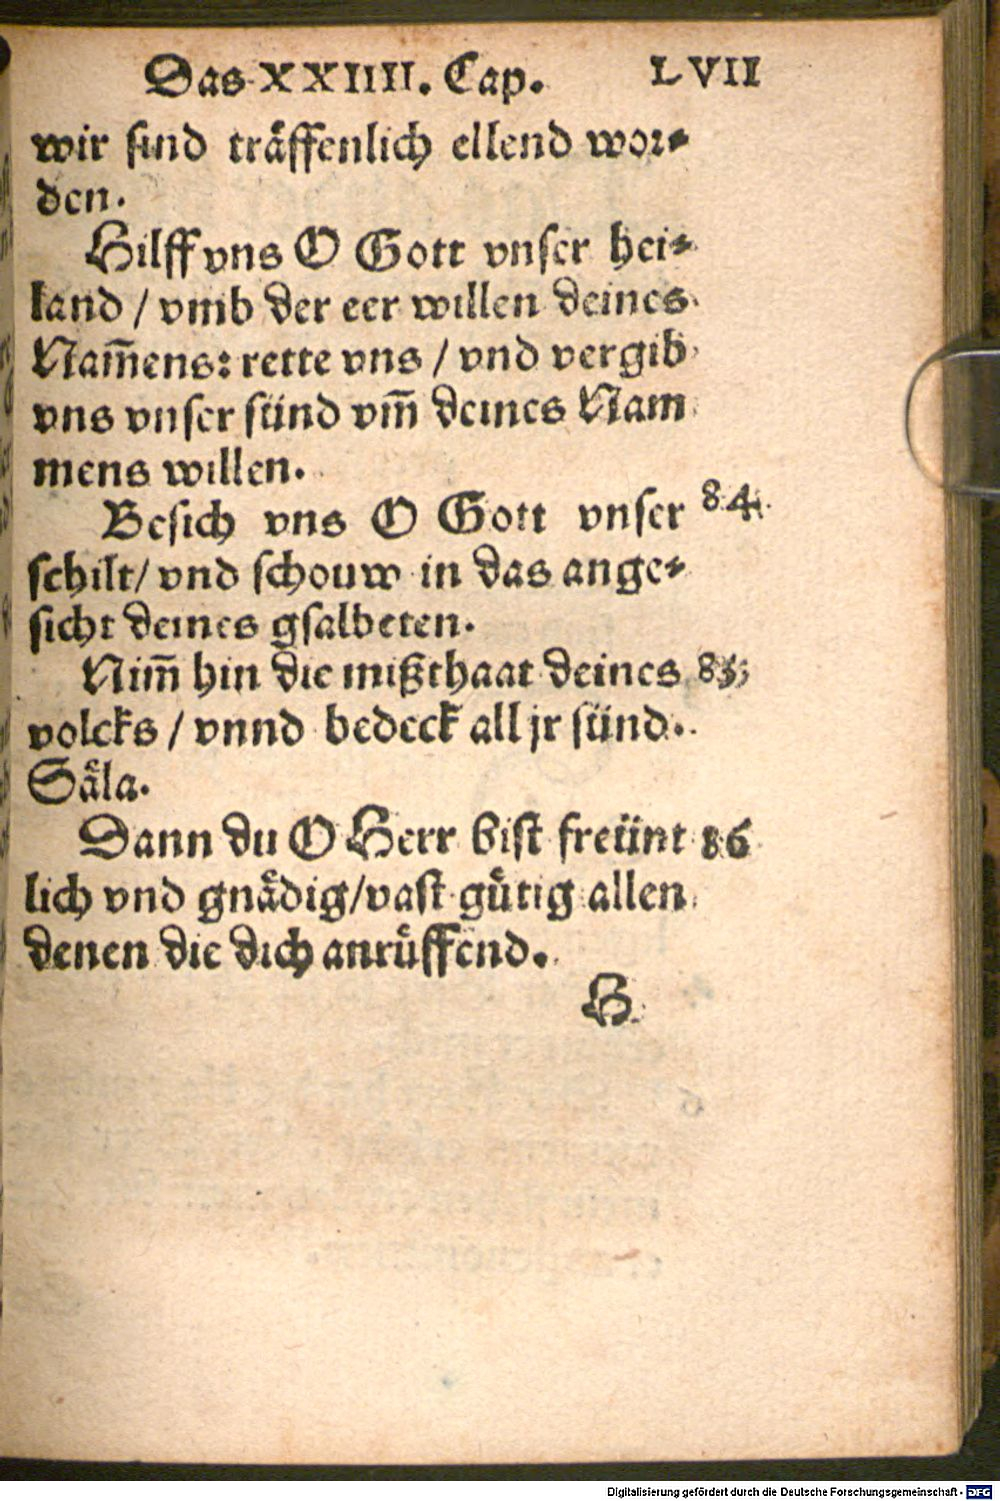 Das XXIIII. Cap. LVII
wir sind träffenlich ellend wor⸗
den.
Hilff vns O Gott vnser hei⸗
land / vmb der eer willen deines
Nam̃ens: rette vns / vnd vergib
vns vnser sünd vm̃ deines Nam
mens willen.
Besich vns O Gott vnser 84.
schilt / vnd schouw in das ange⸗
sicht deines gsalbeten.
Nim̃ hin die mißthaat deines 85
volcks / vnnd bedeck all jr sünd.
Säla.
Dann du O Herr bist freünt 86
lich vnd gnädig / vast guͤtig allen
denen die dich anruͤffend.
H
Digitalisierung gefördert durch die Deutsche Forschungsgemeinschaft - DFG